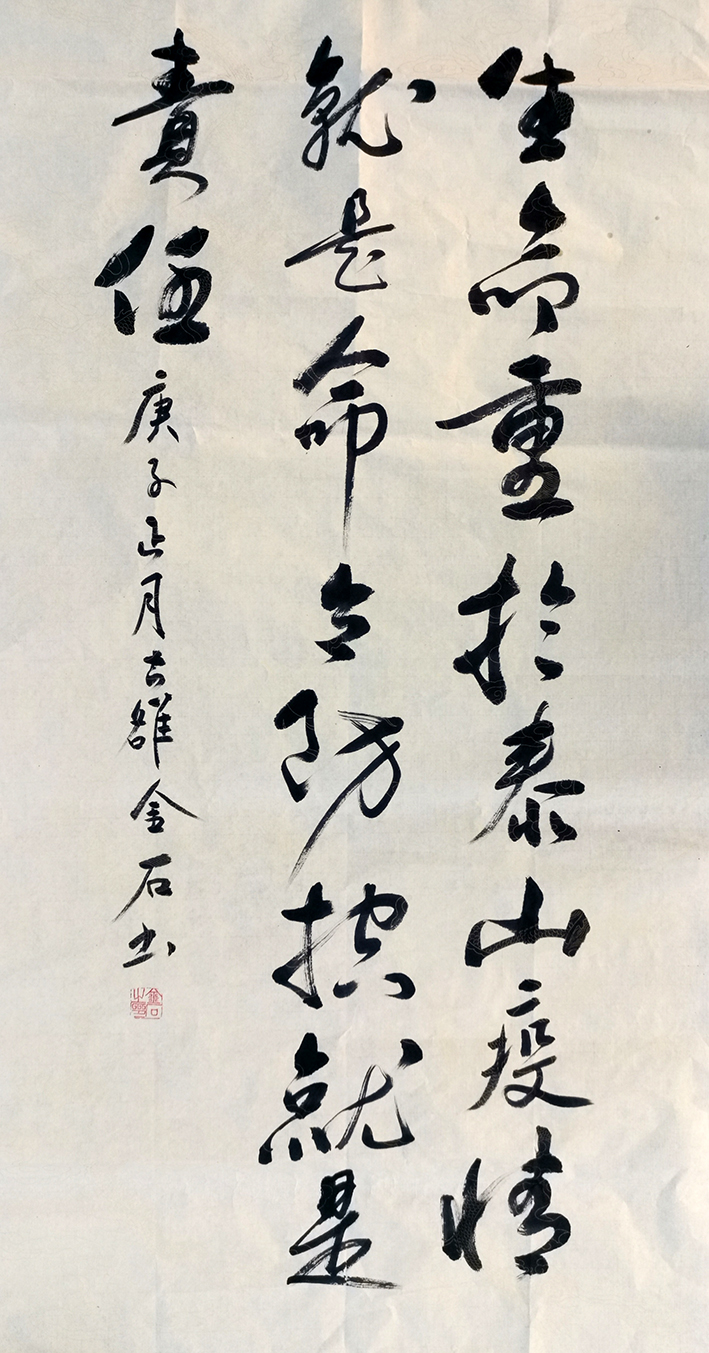 生命重於泰山疫情
就是命令防控就是
責任
庚子正月古雄金石書